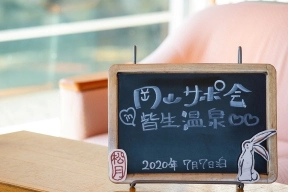 岡山サポ会
皆生温泉
2020年7月7日泊
松月